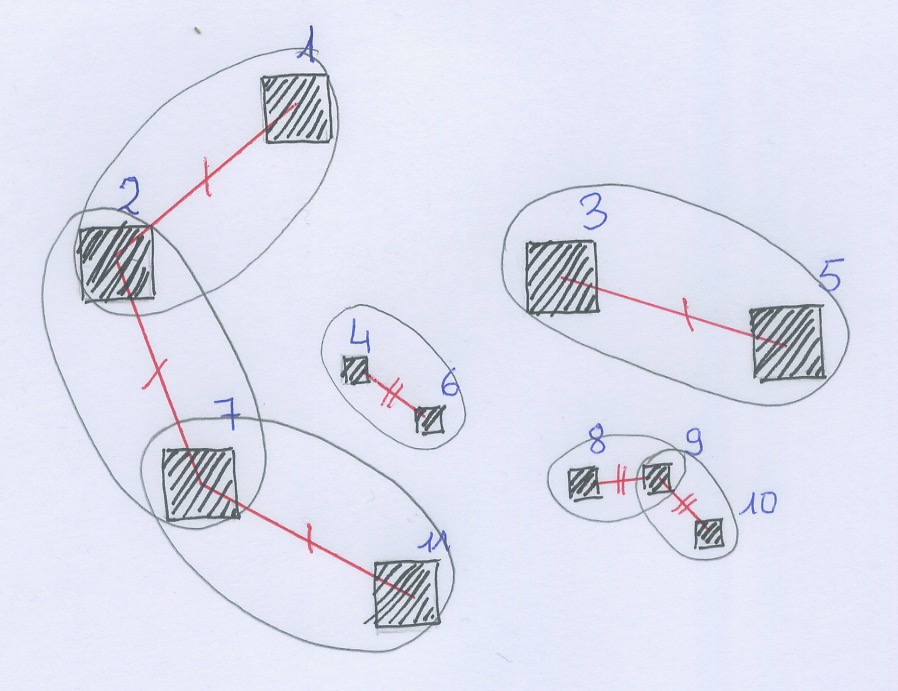 1
2
3
5
4
6
7
8
9
10
11